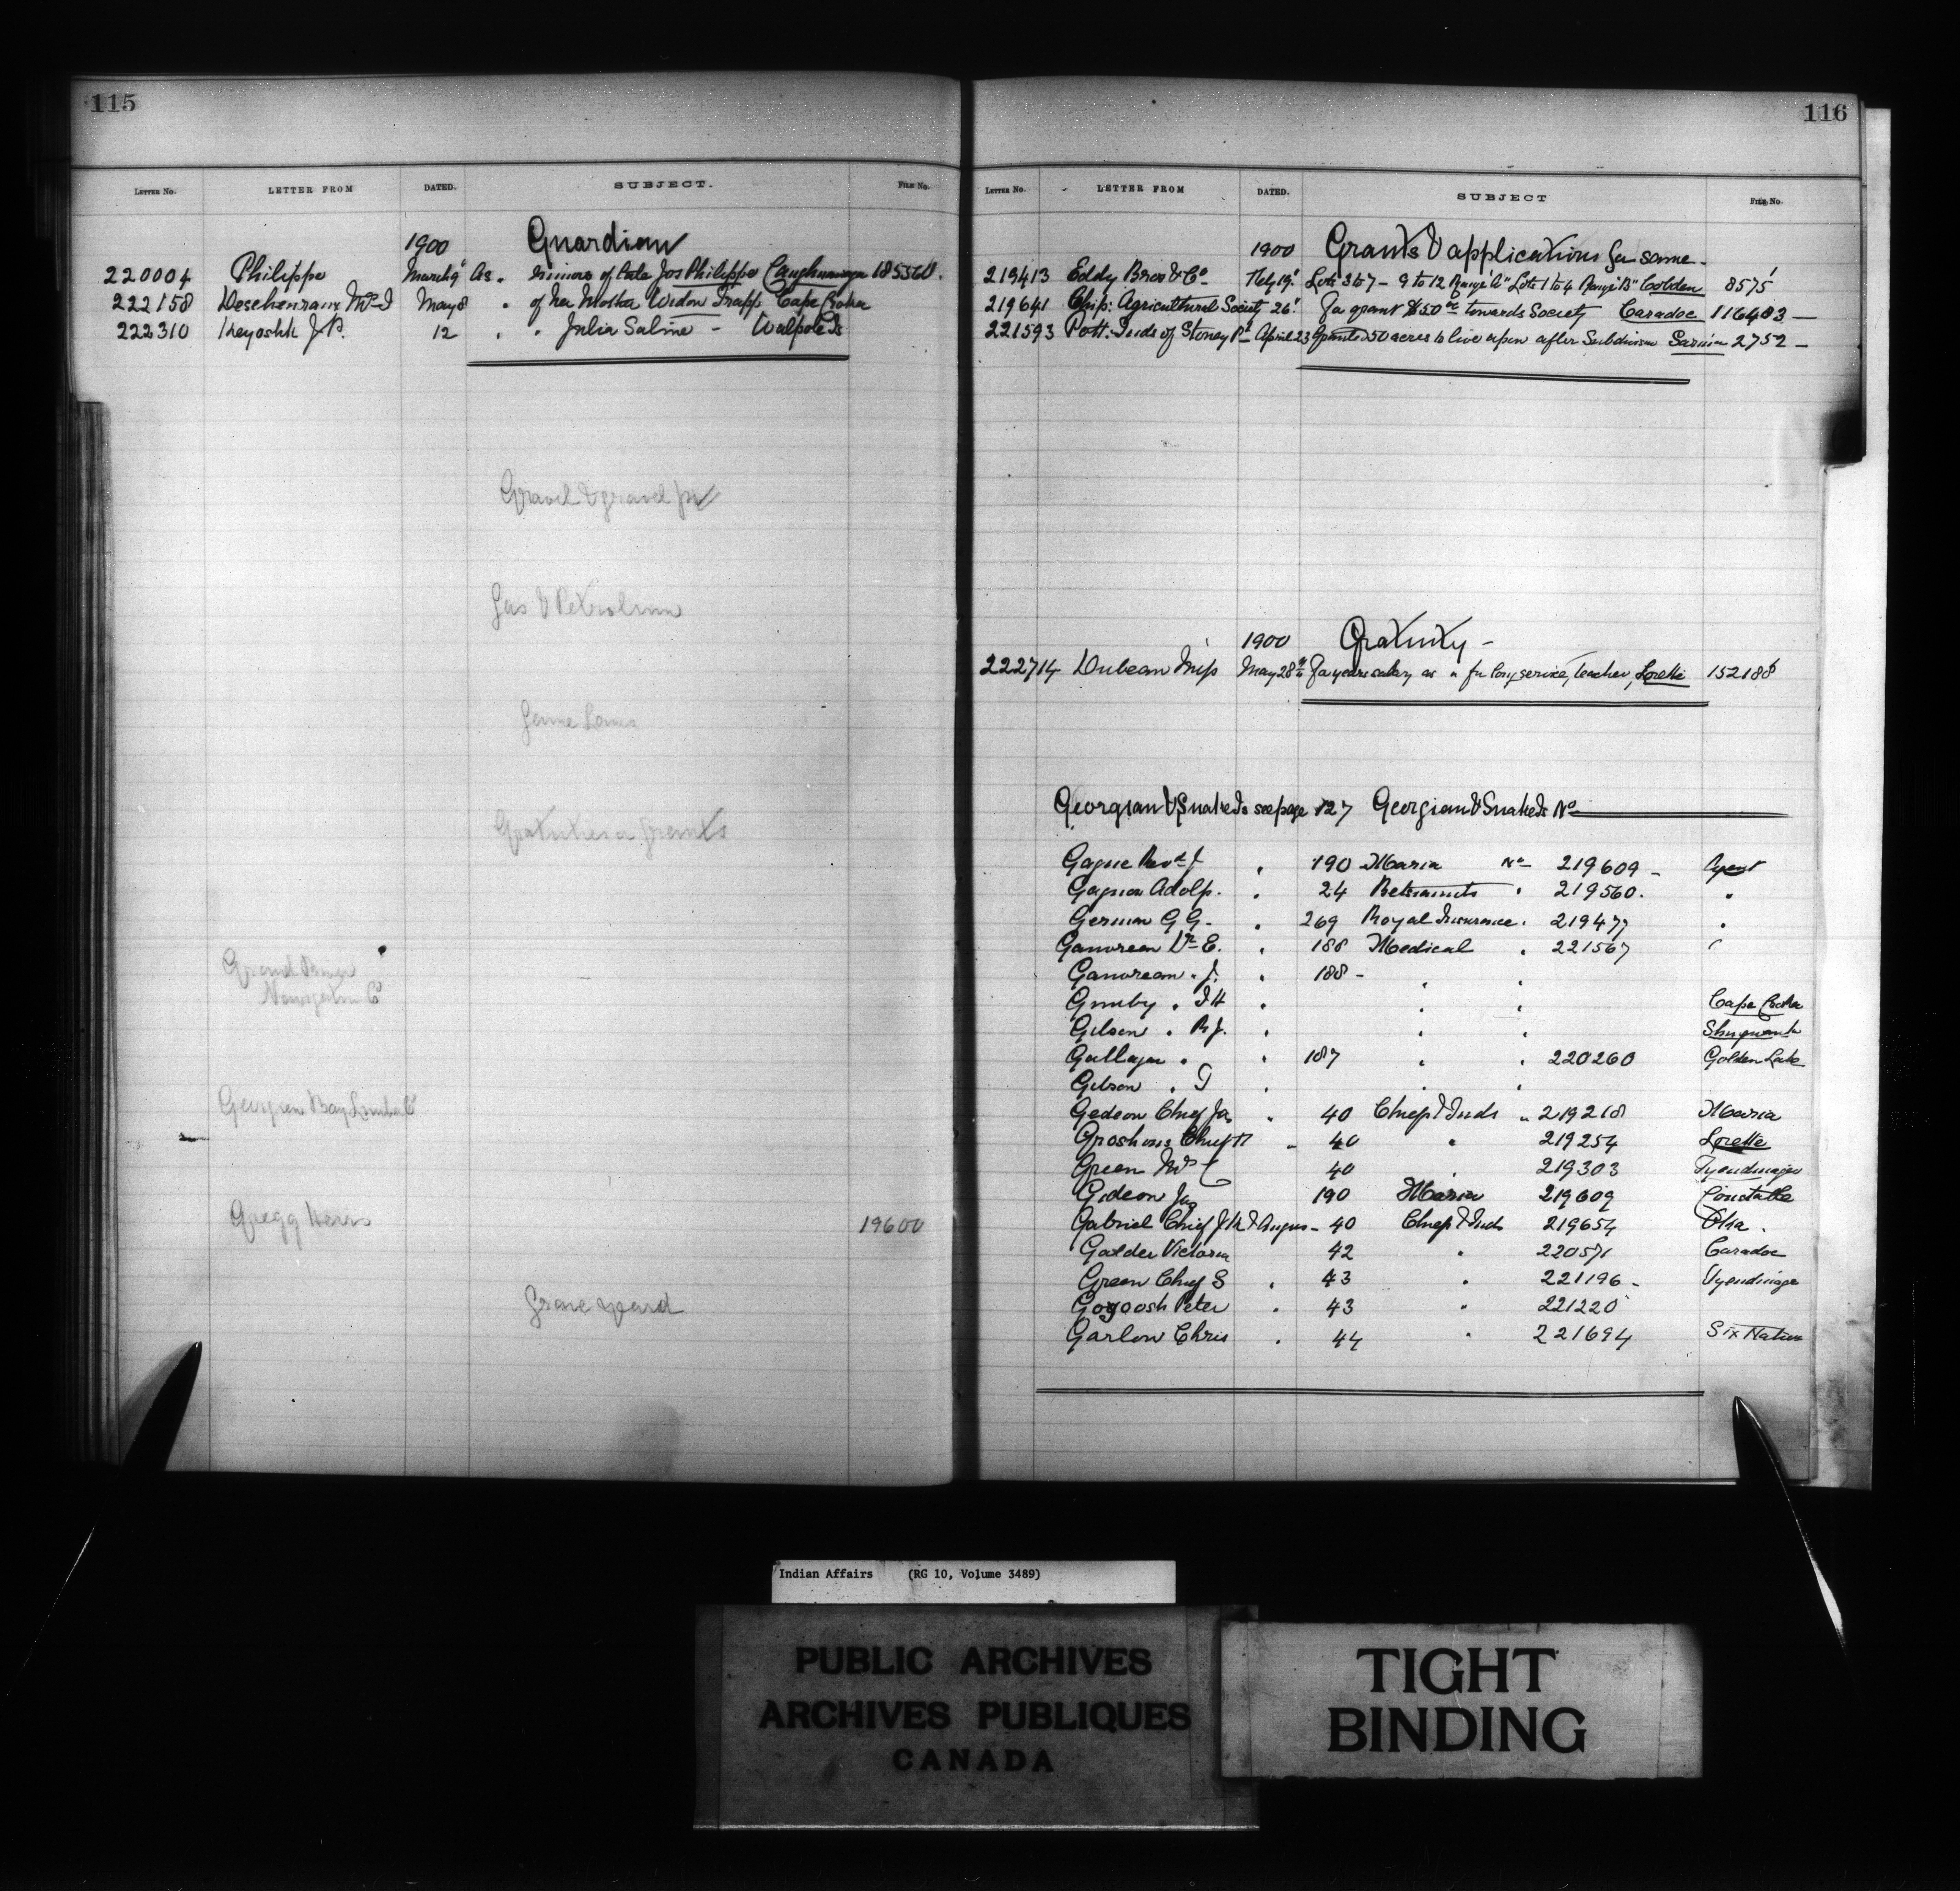 115
LETTER No. LETTER FROM DATED. SUBJECT. FILE No.
1900 Guardian
220004 Philippe March 9 As " minors of late Jos Philippe Caughnawaga 185360.
222158 Deschenraux Mrs I May 8 " of her Mother Widow Trapp Cape Croker
222310 Keyoshk J.B. 12 " " Julia Saline - Walpole Is
Gravel & gravel pit
Gas & Petroleum
Game Laws
Gratuities or Grants
Grand River
Navigation Co
Georgian Bay Lumber Co
Gregg Heirs 19600
Grave yard
116
LETTER No. LETTER FROM DATED. SUBJECT FILE No.
1900 Grants & applications for same.
219413 Eddy Bros & Co Feby 19 Lots 3 to 7 - 9 to 12 Range "A" Lots 1 to 4 Range "B" Golden 8575
219641 Chip: Agricultural Society 26 For grant $50 00 towards Society Caradoc 116403 -
221593 Pott: Inds of Stoney Pt April 23 Granted 50 acres to live upon after Subdivision Sarnia 2752 -
1900 Gratuity -
222714 Dubeau Miss May 28th For years salary as " for long service, Teacher, Lorette 152188
Georgian & Snake Is see page 127 Georgian & Snake Is No
Gagne Revd J " 190 Maria No 219609 - Agent
Gagnon Adolp. " 24 Betsiamits " 219560. "
German G G - " 269 Royal Insurance " 219477 "
Gauvreau Dr E. " 188 Medical " 221567 "
Gauvreau " J. " 188 - " "
" I H " " " Cape Croker
Gibson " R J. " " "
" " 187 " " 220260 Golden Lake
Gibson " G " " "
Gedeon Chief Ja " 40 Chiefs & Inds " 219218 Maria
Chief " 40 " 219254 Lorette
Green Mrs C 40 " 219303 Tyendinaga
Gideon Jas 190 Maria 219609 Constable
Gabriel Chief & Angus - 40 Chiefs & Inds 219654 Oka.
Victoria 42 " 220571 Caradoc
Green Chief S " 43 " 221196 - Tyendinaga
Gogoosh Peter " 43 " 221220
Garlow Chris " 44 " 221694 Six Nation
Indian Affairs (RG 10, Volume 3489)
PUBLIC ARCHIVES
ARCHIVES PUBLIQUES
CANADA
TIGHT
BINDING